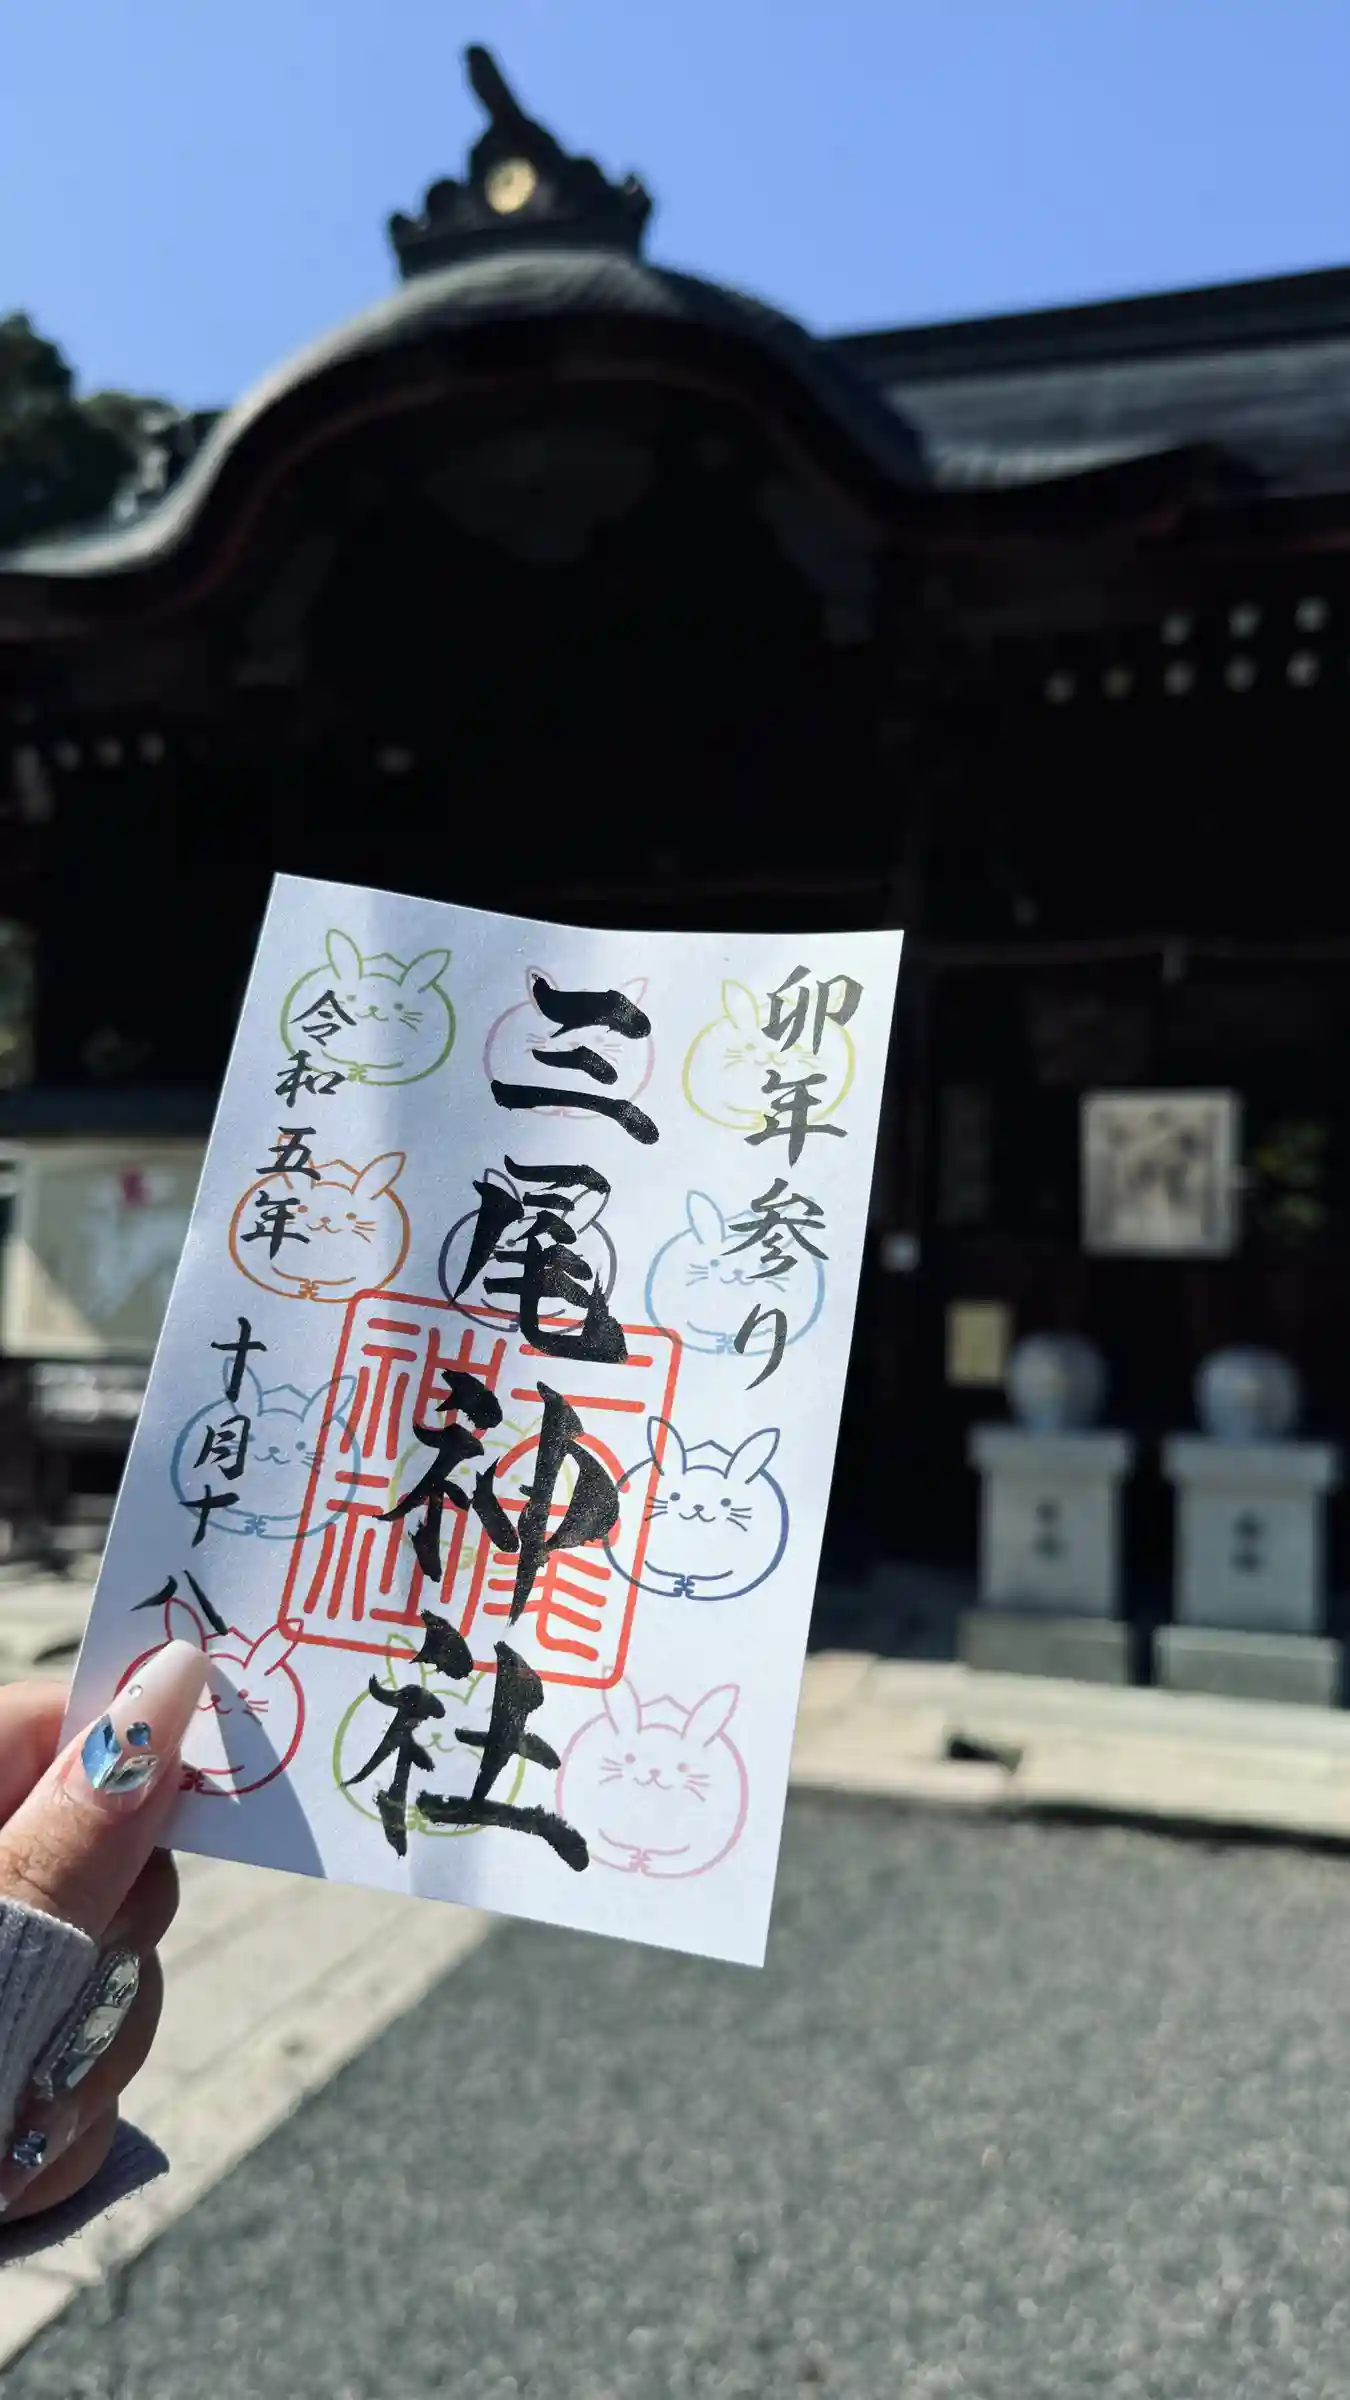 卯年参り
三尾神社
三尾神社
令和五年
十月十八